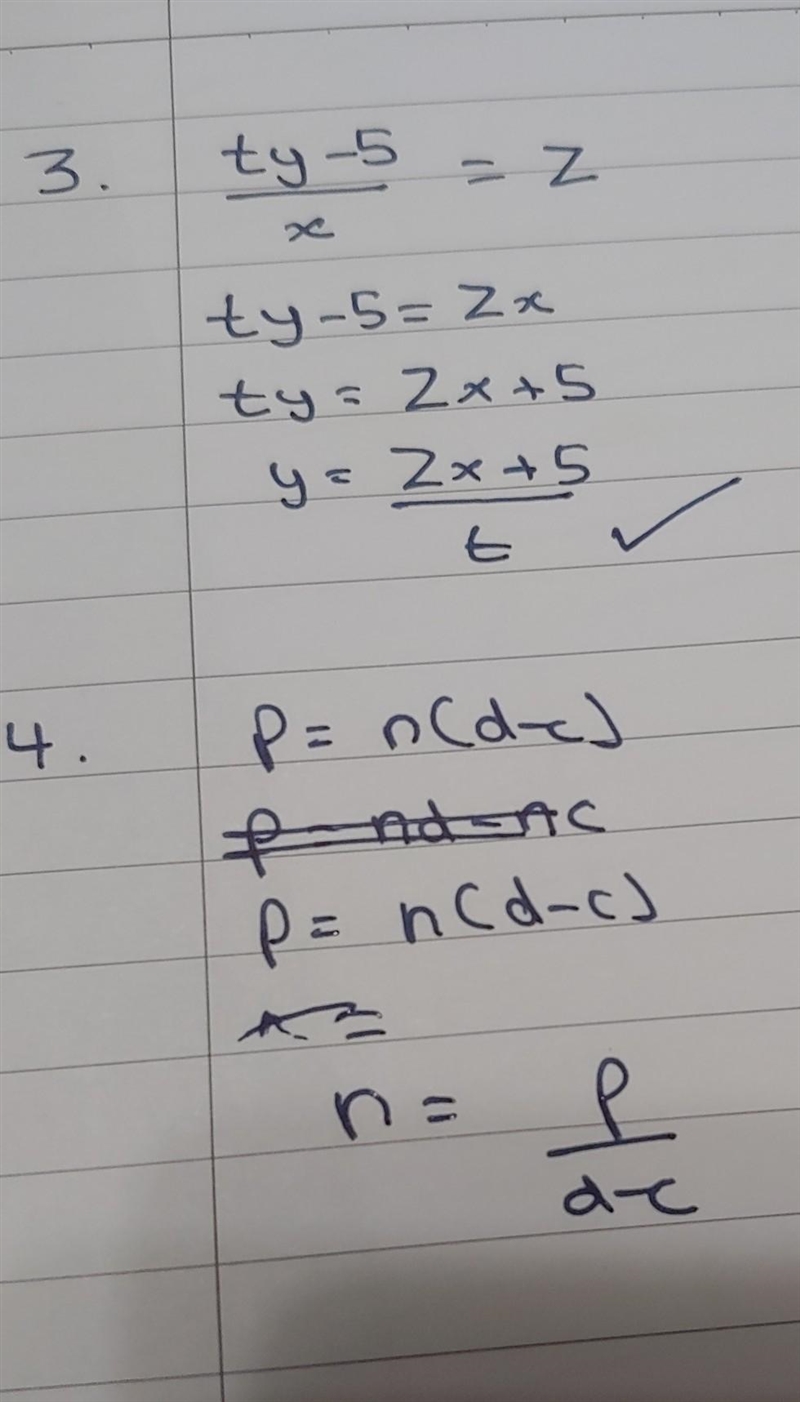 3. ty-5/x = z
ty-5 = zx
ty = zx+5
y = zx+5/t ✓
4. P = n(d-c)
P = nd - nc
P = n(d-c)
n = P/d-c